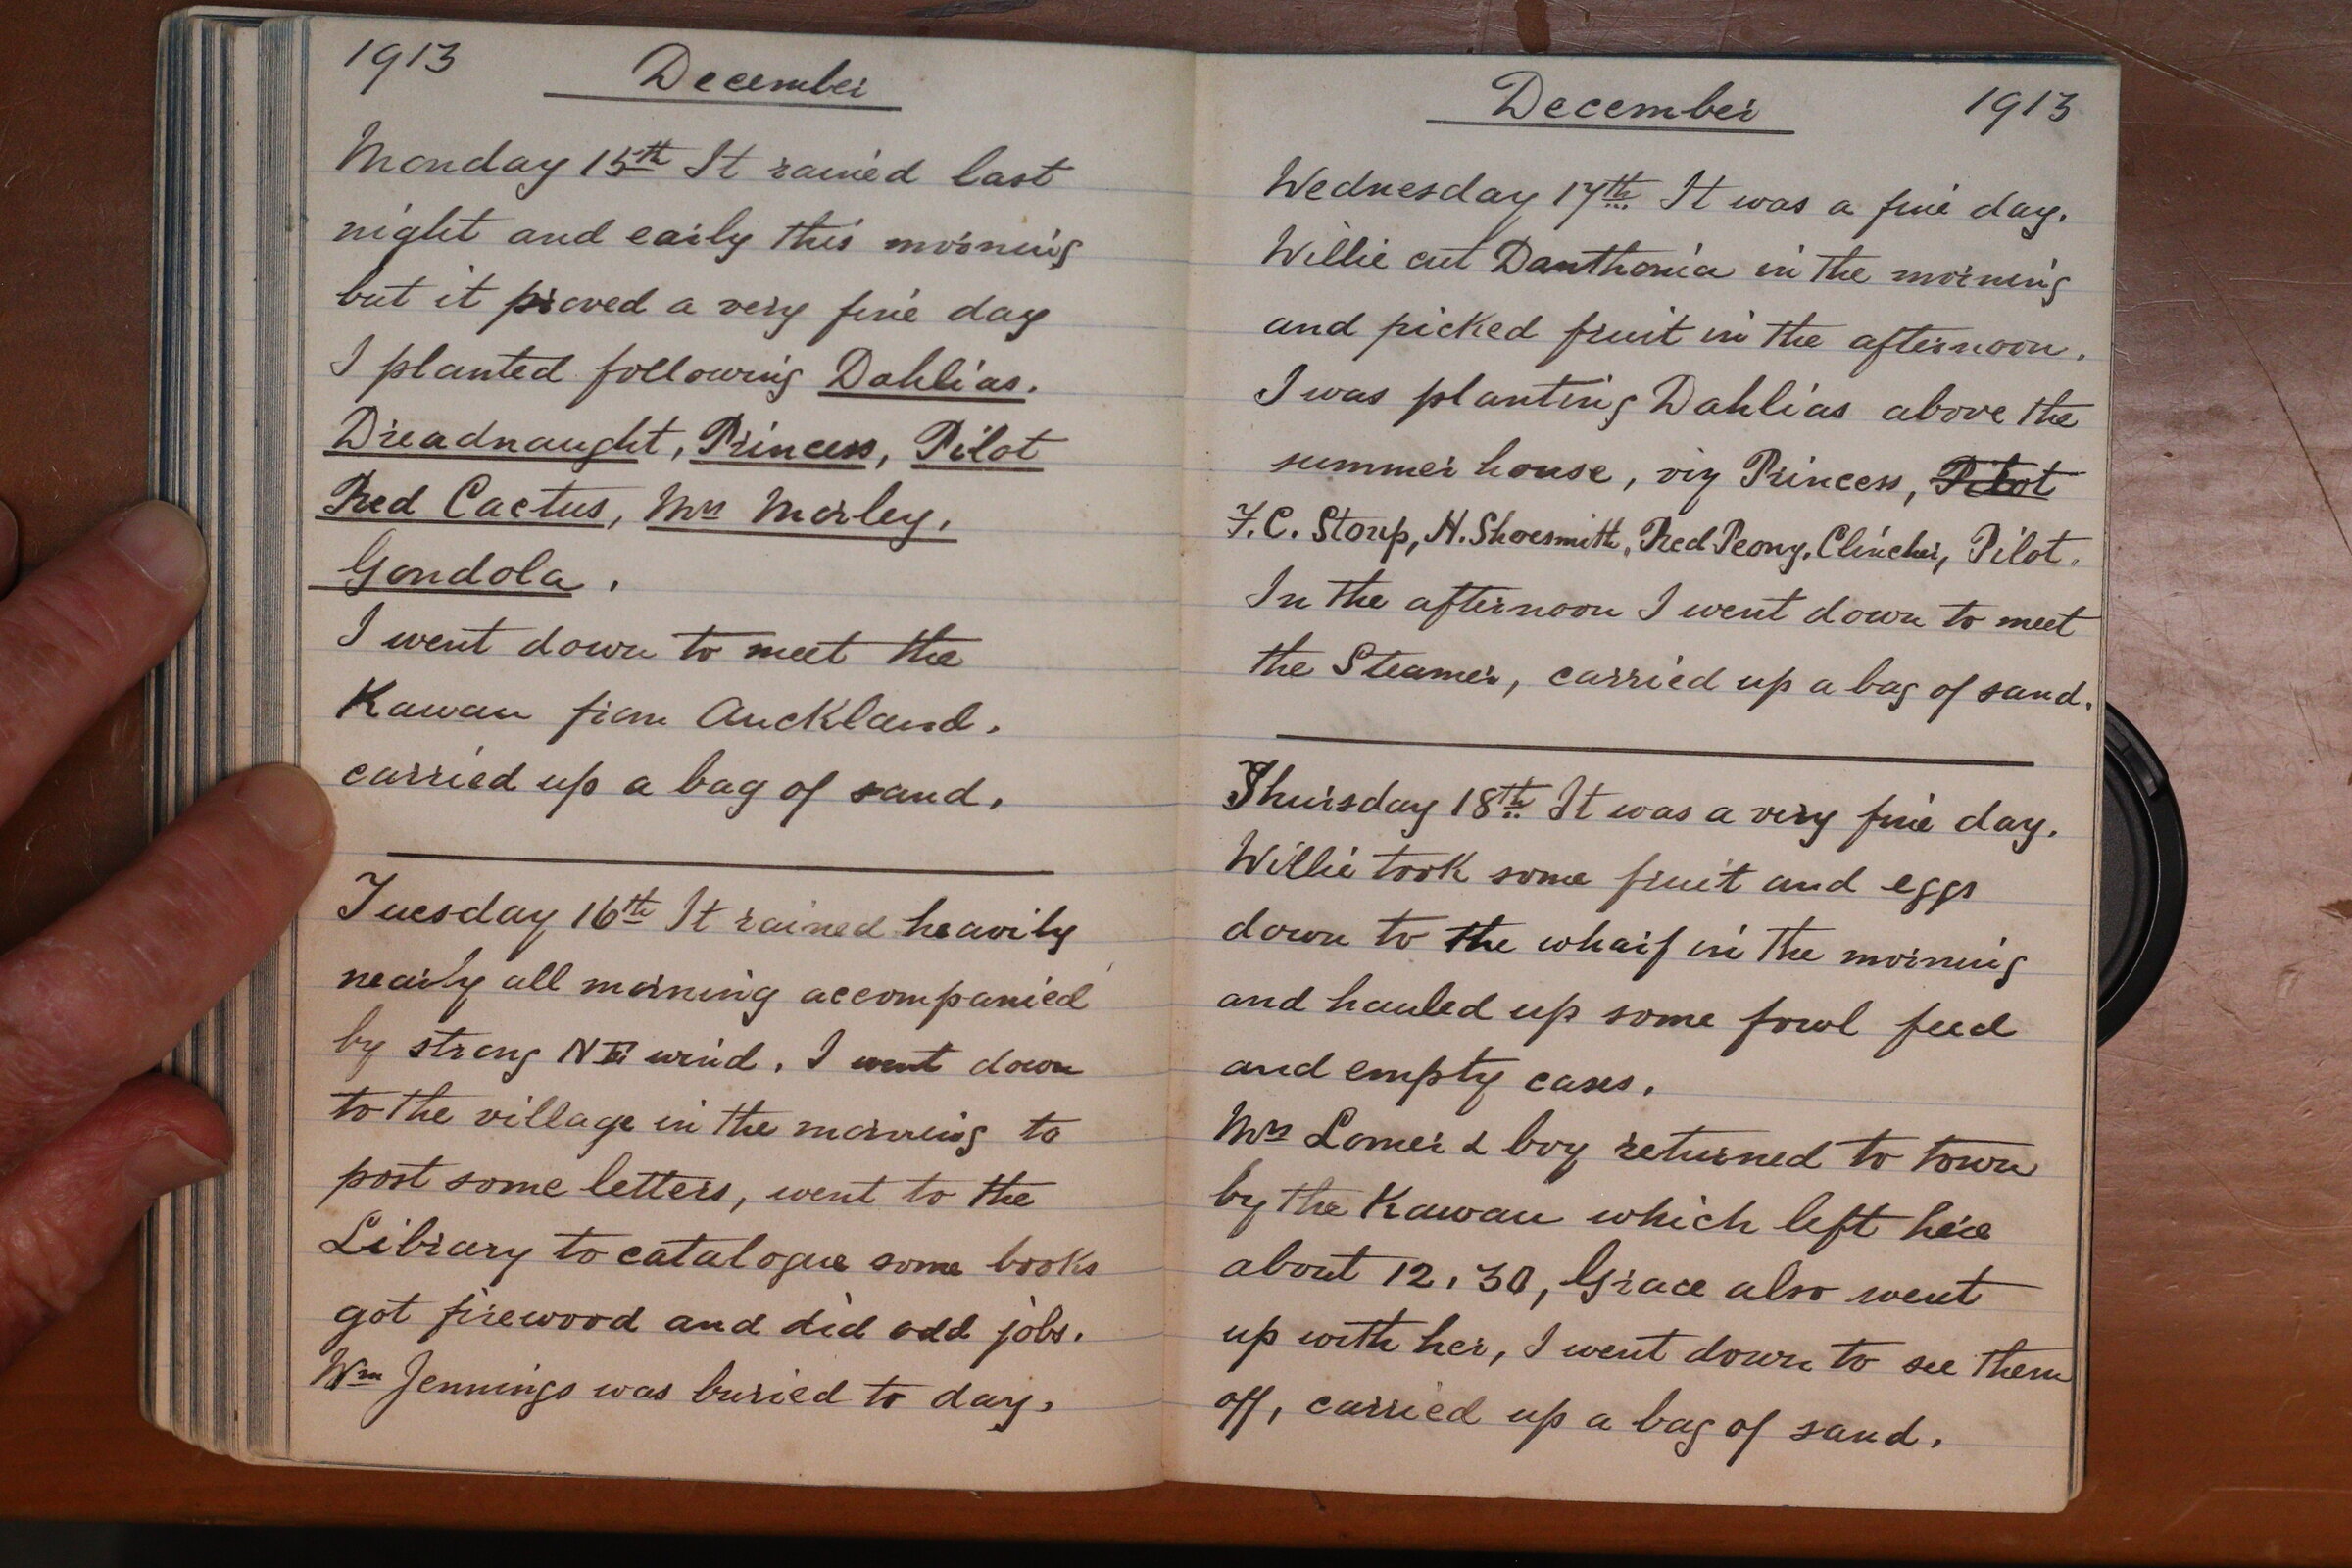 1913
December
Monday 15th It rained last
night and early this morning
but it proved a very fine day
I planted following Dahlias.
Dreadnaught, Princess, Pilot
Red Cactus, Mrs Morley.
Gondola.
I went down to meet the
Kawau from Auckland.
carried up a bag of sand.
Tuesday 16th It rained heavily
nearly all morning accompanied
by strong NE wind. I went down
to the village in the morning to
post some letters, went to the
Library to catalogue some books
got firewood and did odd jobs.
Wm Jennings was buried to day.
December 1913
Wednesday 17th It was a fine day.
Willie cut Danthonia in the morning
and picked fruit in the afternoon.
I was planting Dahlias above the
summer house, viz Princess, Pilot
F.C. Stoup, H. Shoesmith, Red Peony, Clincher, Pilot.
In the afternoon I went down to meet
the Steamer, carried up a bag of sand.
Thursday 18th It was a very fine day.
Willie took some fruit and eggs
down to the wharf in the morning
and hauled up some fowl feed
and empty cases.
Mrs Lomer & boy returned to town
by the Kawau which left here
about 12.30, Grace also went
up with her, I went down to see them
off, carried up a bag of sand.